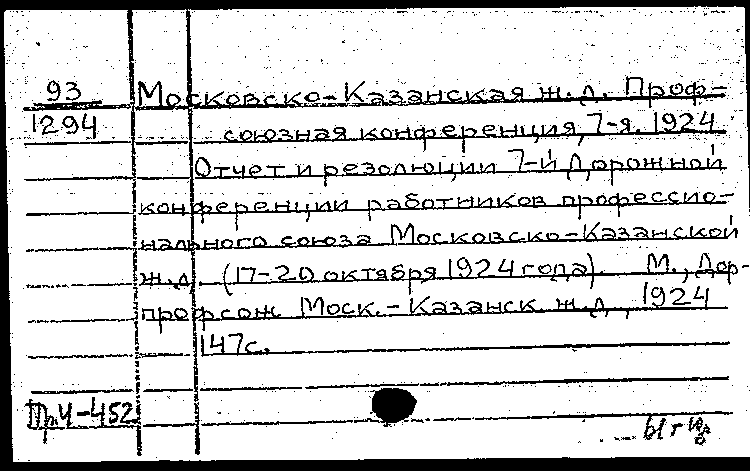 93 Московско-Казанская ж.д. Проф-
1294 союзная конференция, 7-я. 1924
Отчет и резолюции 7-й Дорожной
конференции работников профессио-
нального союза Московско-Казанской
ж.д. (17-20 октября 1924 года). М., Дор-
профсож Моск.-Казанск. ж.д., 1924
147с.
Пр.4-452